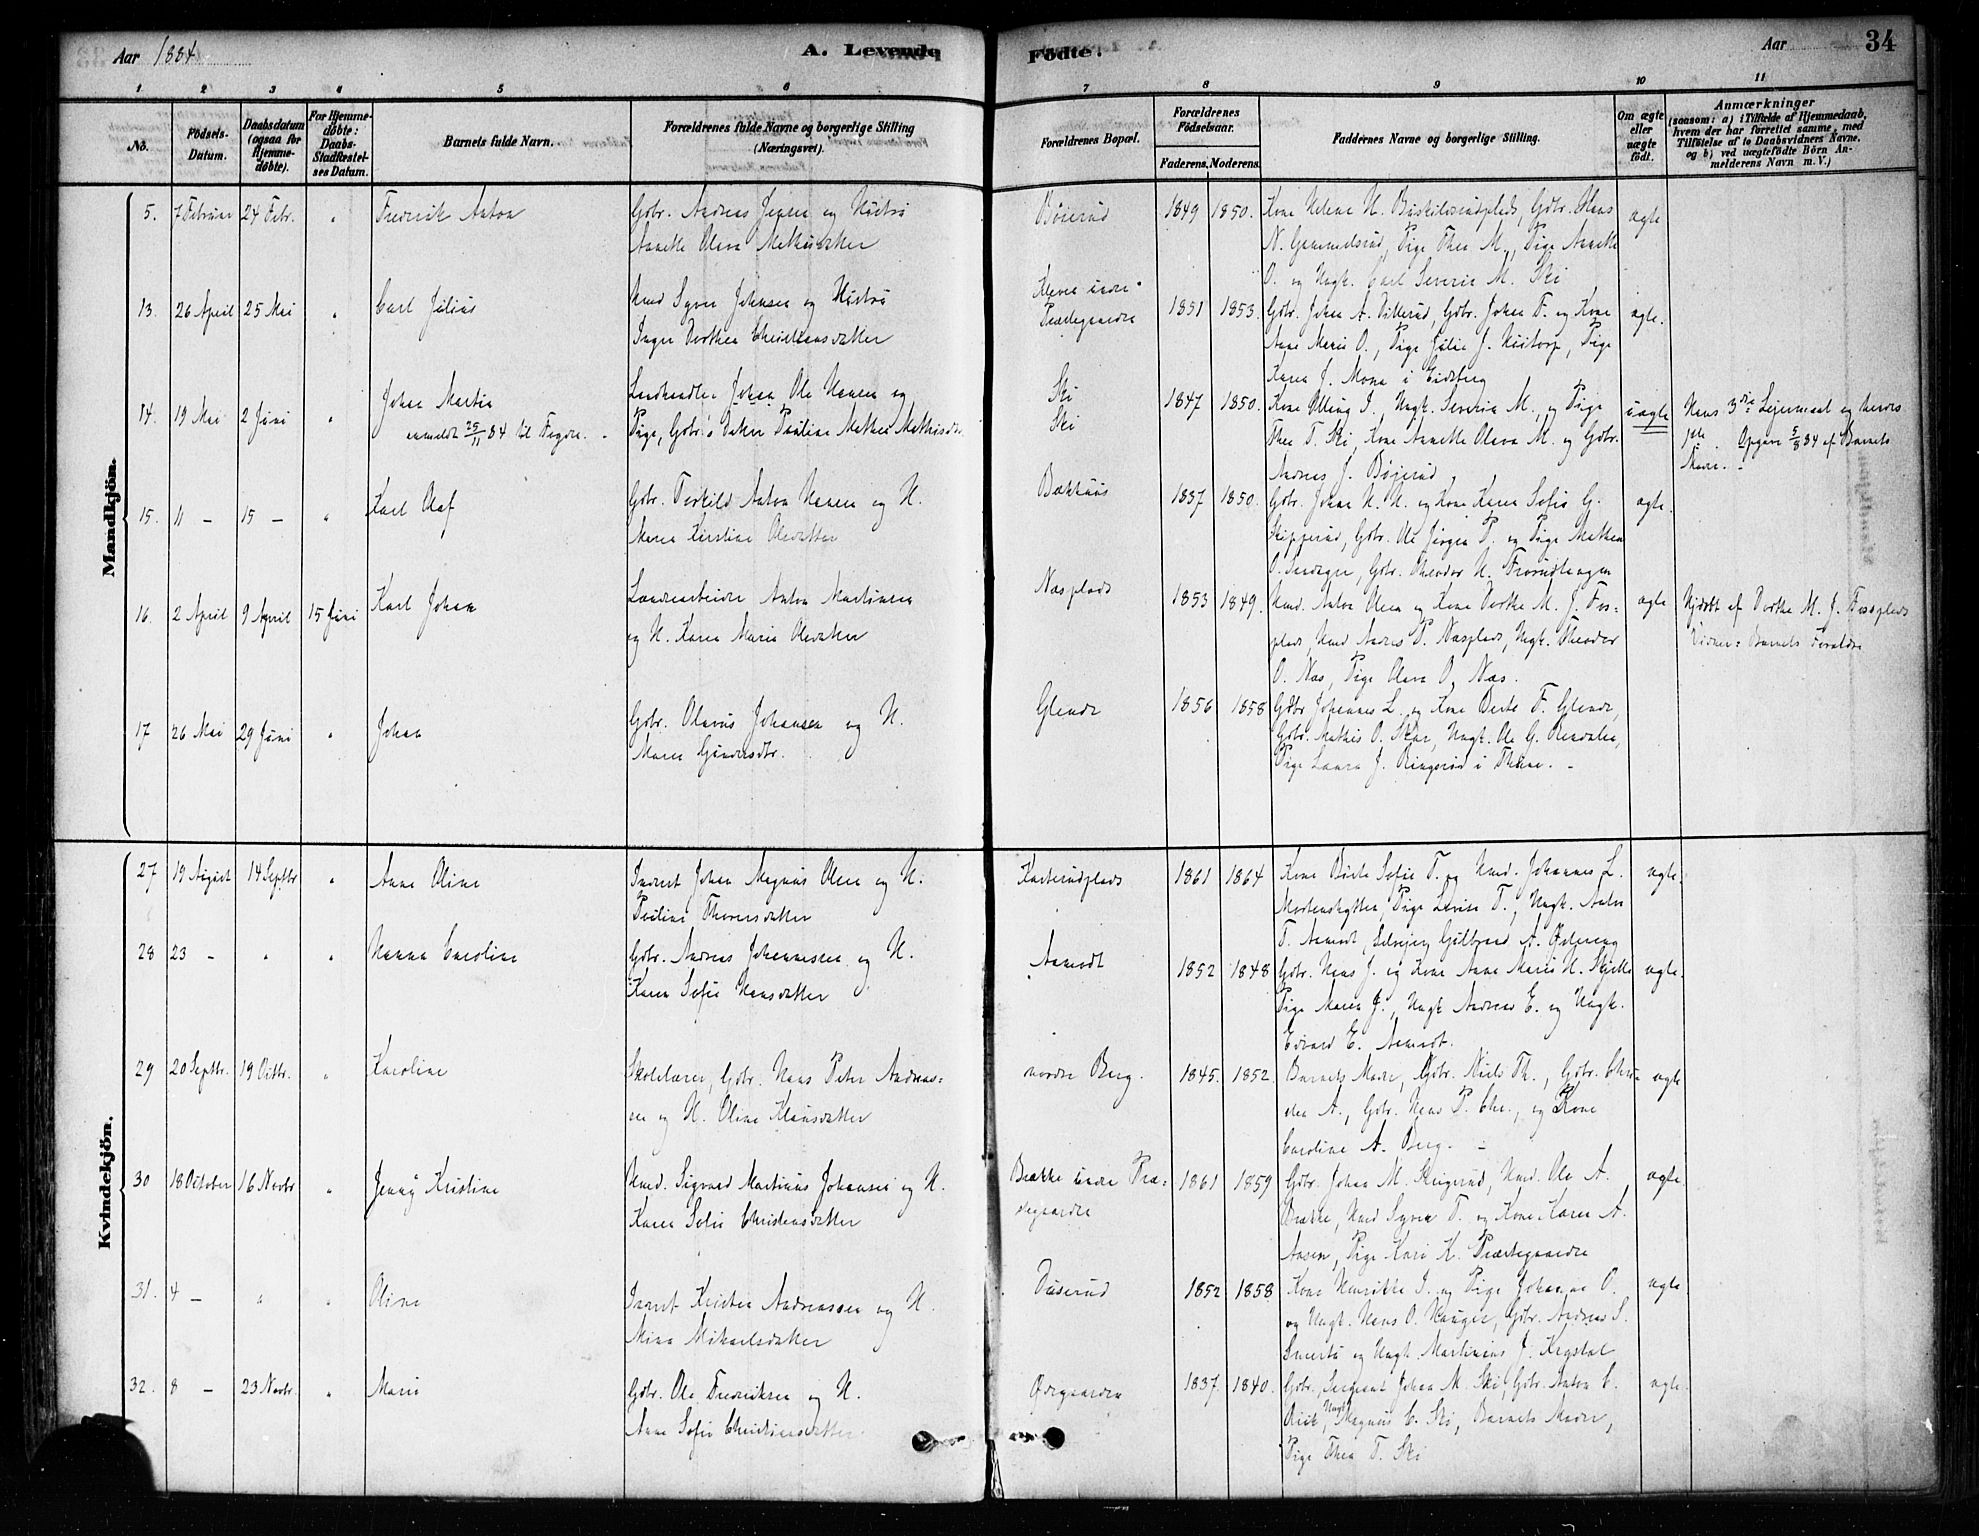 Aar 1884
A. Levende Födte.
Aar
34
1 2 3 4 5 6 7 8 9 10 11
No.
Födsels-Datum.
Daabsdatum (ogsaa for Hjemme-döbte).
For Hjemme-döbte: Daabs-Stadfæstel-ses Datum.
Barnets fulde Navn.
Forældrenes fulde Navne og borgerlige Stilling (Næringsvei).
Forældrenes Bopæl.
Forældrenes Födselsaar.
Faderens. Moderens.
Faddernes Navne og borgerlige Stilling.
Om ægte eller uægte födt.
Anmærkninger
(saasom: a) i Tilfælde af Hjemmedaab, hvem der har forrettet samme, med Tilföielse af to Daabsvidners Navne, og b) ved uægtefödte Börn An-melderens Navn m. V.)
Mandkjön.
5. 7 Februar 24 Febr. " Fredrik Anton
Gbr. Andreas Jensen og Hustru
Annette Olava Mathisdatter
Böierud 1849 1850.
Kone Helene H. Buskilsrudplads, Gbr. Hans
N. Gammelsrud, Pige Thea M., Pige Annette
O. og Ungk. Carl Severin M. Ski
ægte
13. 26 April 25 Mai " Carl Julius
Hmd Syver Johnsen og Hustru
Inger Dorthea Christiansdatter
Kleven under Præstegaarden 1851 1853.
Gbr. Johan A. Villerud, Gbr. Johan F. og Kone
Anne Marie O., Pige Julie J. Huitorp, Pige
Karen J. Mona i Eidsberg
ægte.
14. 19 Mai 2 Juni " Johan Martin
anmeldt 25/11 84 til Fogden.
Landhandler Johan Ole Hansen og
Pige, Gbr's Datter Pauline Mathea Mathisdr.
Ski
Ski
1847 1850.
Kone Elling I., Ungk. Severin M., og Pige
Thea T. Ski, Kone Annette Olava M. og Gbr.
Andreas J. Böierud
uægte
Hans 3die Leiermaal og hendes
1ste. Opgave 5/8 84 af Barnets
Moder.
15. 11 - 15 - " Karl Olaf
Gbr. Torkild Anton Hansen og H.
Maren Kirstine Olsdatter
Bækhuus 1837 1850.
Gbr. Johan H. H. og Kone Karen Sofie G.
Skipperud, Gbr. Ole Jörgen P. og Pige Mathea
O. Sandager, Gbr. Theodor H. Frorudhagen
ægte.
16. 2 April 9 April 15 Juni Karl Johan
Landarbeider Anton Martinsen
og H. Karen Marie Olsdatter
Næsplads 1853 1849.
Hmd. Anton Olsen og Kone Dorthe M. J. Fos-
plads, Hmd Andreas P. Næsplads, Ungk. Theodor
O. Næs, Pige Olava O. Næs.
ægte
Hjdöbt af Dorthe M. J. Fossplads
Vidner: Barnets Forældre
17 26 Mai 29 Juni " Johan
Gbr. Olavus Johansen og H.
Maren Gundersdtr.
Glende 1856 1858
Gbr Johannes L. og Kone Berte F. Glende,
Gbr. Mathis O. Skar, Ungk. Ole G. Revdalen,
Pige Laura J. Ringsrud i Thune.
Kvindekjön.
27 19 August 14 Septbr " Anna Oline
Inderst Johan Magnus Olsen og H.
Pauline Thorersdatter
Karterudplads 1861 1864
Kone Börte Sofie T. og Hmd. Johannes L.
Mortenshytten, Pige Lovise T., Ungk. Anton
T. Aamodt, Selveier Gulbrand A. Östereng
ægte.
28 23 - " " Hanna Caroline
Gbr. Andreas Johannessen og H.
Karen Sofie Hansdatter
Aamodt 1852 1848
Gbr. Hans J. og Kone Anne Marie H. Skjelle
Pige Maren J., Ungk Andreas E. og Ungk.
Edvard E. Aamodt.
ægte.
29 20 Septbr. 19 Octbr. " Karoline
Skolelærer, Gbr. Hans Peter Andreas-
sen og H. Oline Klausdatter
nordre Berg. 1845. 1852.
Barnets Moder, Gbr. Niels Th., Gbr. Chri-
sten A., Gbr. Hans P. Chr., og Kone
Caroline A. Berg.
ægte
30 18 October 16 Novbr " Jenny Kristine
Hmd. Sigvard Martinius Johansen og H.
Karen Sofie Christensdatter
Brække under Præ-
stegaarden 1861 1859
Gbr. Johan M. Ringsrud, Hmd. Ole A.
Brække, Hmd Syver T. og Kone Karen A.
Aasen, Pige Kari K. Præstegaarden
ægte.
31. 4 - " " Oline
Inderst Kristen Andreassen og H.
Mina Mikaelsdatter
Duserud 1852 1858
Kone Henrikke I. og Pige Johanne O.
og Ungk. Hans O. Haugen, Gbr. Andreas S.
Smertu og Ungk. Martinius J. Krogstal
ægte
32. 8 - 23 Novbr. " Marie
Gbr. Ole Fredriksen og H.
Anne Sofie Christiansdatter
Ödegaarden 1837 1840.
Gbr., Sergeant Johan M. Ski, Gbr. Anton C.
Ungk. Magnus C. Ski, Barnets Moder,
Pige Thea T. Ski
ægte.